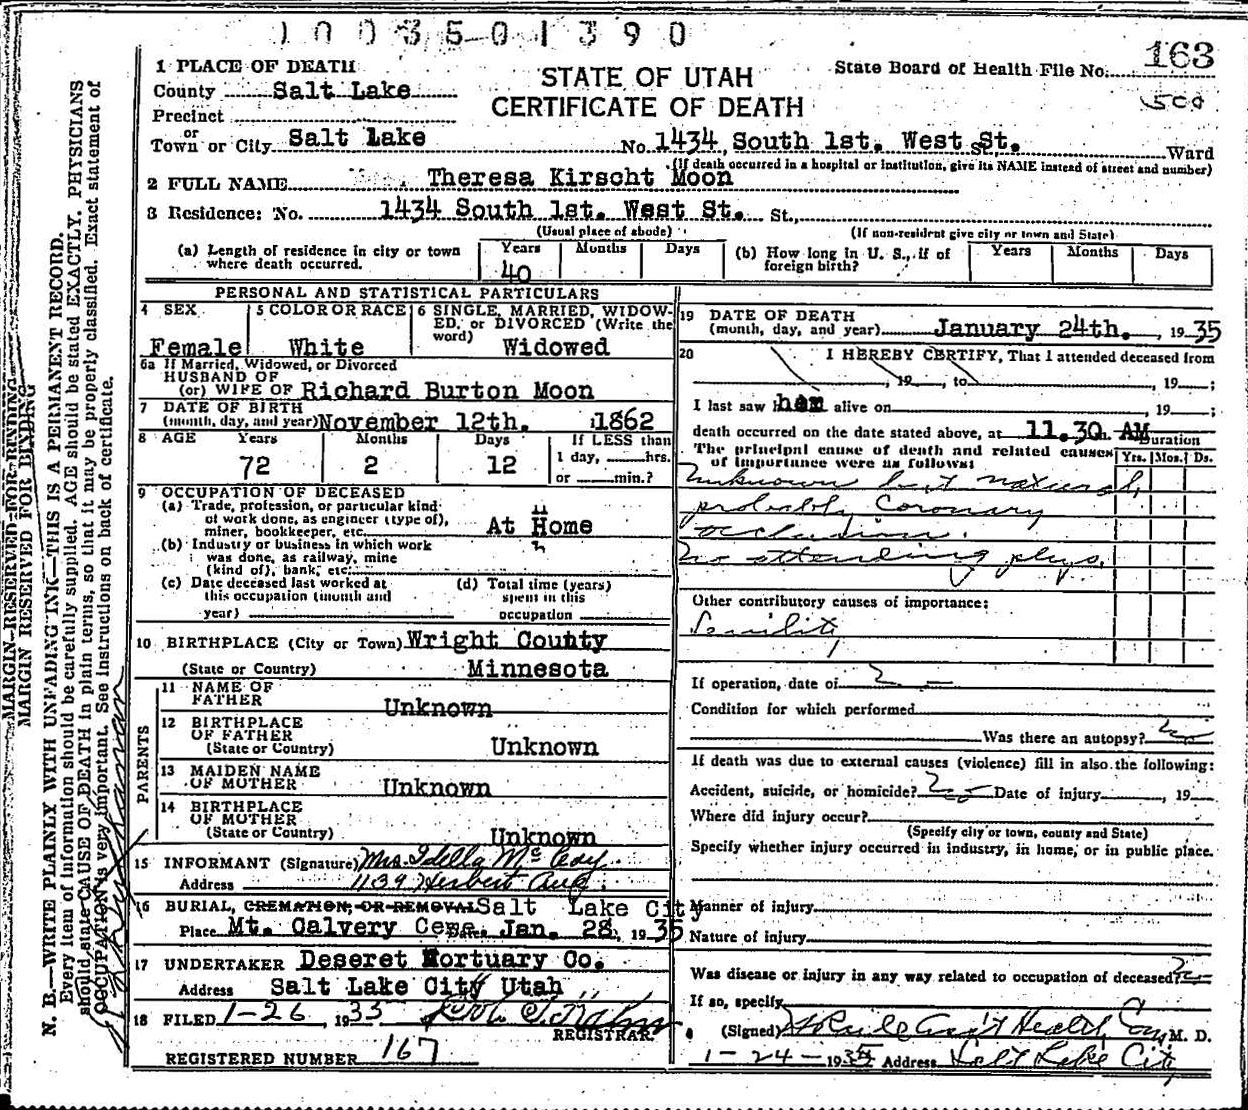 1003501390
163
500
STATE OF UTAH
CERTIFICATE OF DEATH
State Board of Health File No.
1 PLACE OF DEATH
County Salt Lake
Precinct
or
Town or City Salt Lake No. 1434 South 1st. West St. St. Ward
(If death occurred in a hospital or institution, give its NAME instead of street and number)
2 FULL NAME Theresa Kirscht Moon
3 Residence: No. 1434 South 1st. West St. St.,
(Usual place of abode) (If non-resident give city or town and State)
(a) Length of residence in city or town where death occurred. Years 40 Months Days
(b) How long in U. S., if of foreign birth? Years Months Days
PERSONAL AND STATISTICAL PARTICULARS
4 SEX Female
5 COLOR OR RACE White
6 SINGLE, MARRIED, WIDOWED, or DIVORCED (Write the word) Widowed
6a If Married, Widowed, or Divorced
HUSBAND OF
(or) WIFE OF Richard Burton Moon
7 DATE OF BIRTH
(month, day, and year) November 12th. 1862
8 AGE Years Months Days If LESS than
72 2 12 1 day, hrs.
or min.?
9 OCCUPATION OF DECEASED
(a) Trade, profession, or particular kind
of work done, as engineer (type of),
miner, bookkeeper, etc. At Home
(b) Industry or business in which work
was done, as railway, mine
(kind of), bank, etc.
(c) Date deceased last worked at
this occupation (month and
year)
(d) Total time (years)
spent in this
occupation
10 BIRTHPLACE (City or Town) Wright County
(State or Country) Minnesota
PARENTS
11 NAME OF
FATHER Unknown
12 BIRTHPLACE
OF FATHER
(State or Country) Unknown
13 MAIDEN NAME
OF MOTHER Unknown
14 BIRTHPLACE
OF MOTHER
(State or Country) Unknown
15 INFORMANT (Signature) Mrs. Idella McCoy
Address 1139 Herbert Ave.
16 BURIAL, CREMATION, OR REMOVAL Salt Lake City
Place Mt. Calvery Cem. Jan. 28, 1935
17 UNDERTAKER Deseret Mortuary Co.
Address Salt Lake City Utah
18 FILED 1-26, 1935
REGISTRAR.
REGISTERED NUMBER 167
19 DATE OF DEATH
(month, day, and year) January 24th. , 1935
20 I HEREBY CERTIFY, That I attended deceased from
, 19 , to , 19 ;
I last saw her alive on , 19 ;
death occurred on the date stated above, at 11.30 AM
Duration
The principal cause of death and related causes Yrs. Mos. Ds.
of importance were as follows:
Unknown but natural,
probably Coronary
occlusion.
No attending phys.
Other contributory causes of importance:
Senility
If operation, date of
Condition for which performed
Was there an autopsy? No
If death was due to external causes (violence) fill in also the following:
Accident, suicide, or homicide? No Date of injury , 19
Where did injury occur?
(Specify city or town, county and State)
Specify whether injury occurred in industry, in home, or in public place.
Manner of injury
Nature of injury
Was disease or injury in any way related to occupation of deceased? No
If so, specify
(Signed) Health Com M. D.
1-24-1935 Address Salt Lake City
MARGIN RESERVED FOR BINDING
MARGIN RESERVED FOR BINDING
N. B.—WRITE PLAINLY WITH UNFADING INK—THIS IS A PERMANENT RECORD.
Every item of information should be carefully supplied. AGE should be stated EXACTLY. PHYSICIANS
should state CAUSE OF DEATH in plain terms, so that it may be properly classified. Exact statement of
OCCUPATION is very important. See instructions on back of certificate.